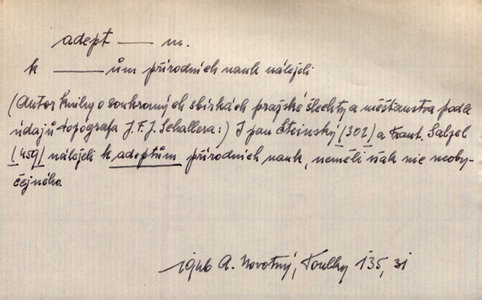 adept — m.
k — ům přírodních nauk náleželi
(Autor knihy o soukromých sbírkách pražské šlechty a měšťanstva podle
údajů topografa J. F. J. Schallera:) I pan Šteinský /302/ a Frant. Salzel
/459/ náleželi k adeptům přírodních nauk, neměli však nic neoby-
čejného.
1946 A. Novotný, Toulky 135, 31